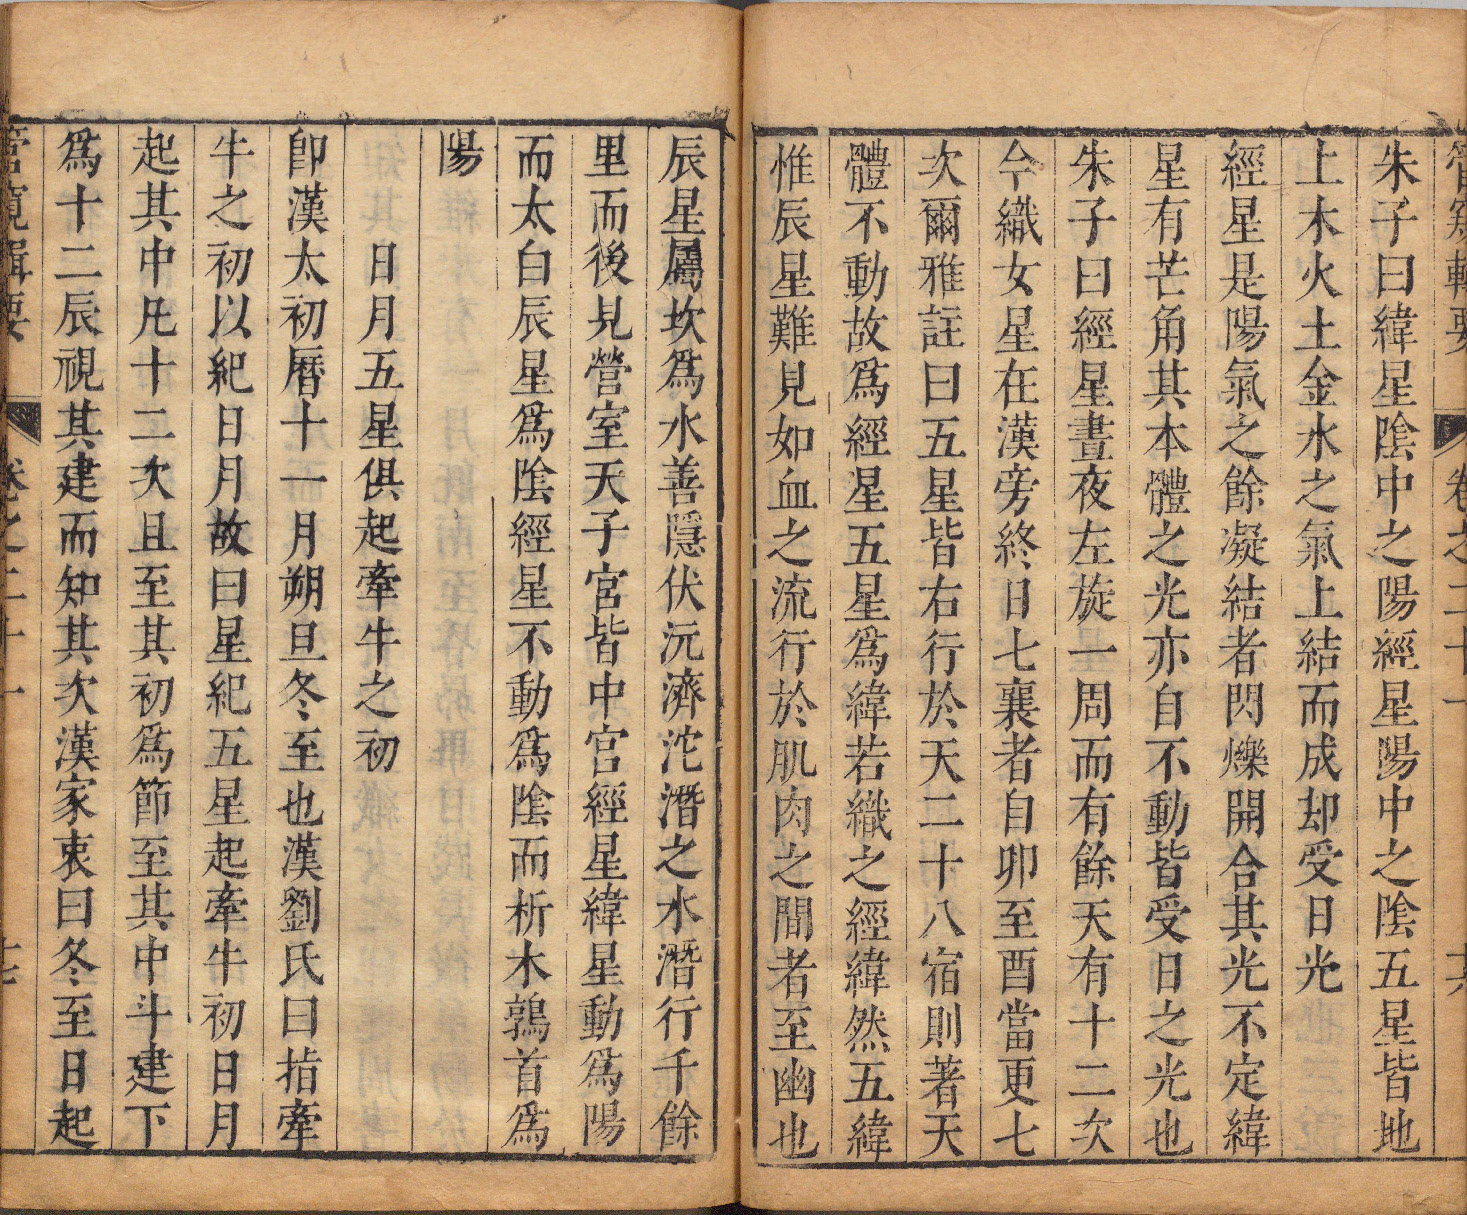 管窺輯要 卷之二十一 十六
朱子曰緯星陰中之陽經星陽中之陰五星皆地
上木火土金水之氣上結而成却受日光
經星是陽氣之餘凝結者閃爍開合其光不定緯
星有芒角其本體之光亦自不動皆受日之光也
朱子曰經星晝夜左旋一周而有餘天有十二次
今織女星在漢旁終日七襄者自卯至酉當更七
次爾雅註曰五星皆右行於天二十八宿則著天
體不動故為經星五星為緯若織之經緯然五緯
惟辰星難見如血之流行於肌肉之間者至幽也
辰星屬坎為水善隱伏沅濟沱潛之水潛行千餘
里而後見營室天子宮皆中宮經星緯星動為陽
而太白辰星為陰經星不動為陰而析木鶉首為
陽
日月五星俱起牽牛之初
卽漢太初曆十一月朔旦冬至也漢劉氏曰指牽
牛之初以紀日月故曰星紀五星起牽牛初日月
起其中凡十二次且至其初為節至其中斗建下
為十二辰視其建而知其次漢家衷曰冬至日起
管窺輯要 卷之二十一 十七